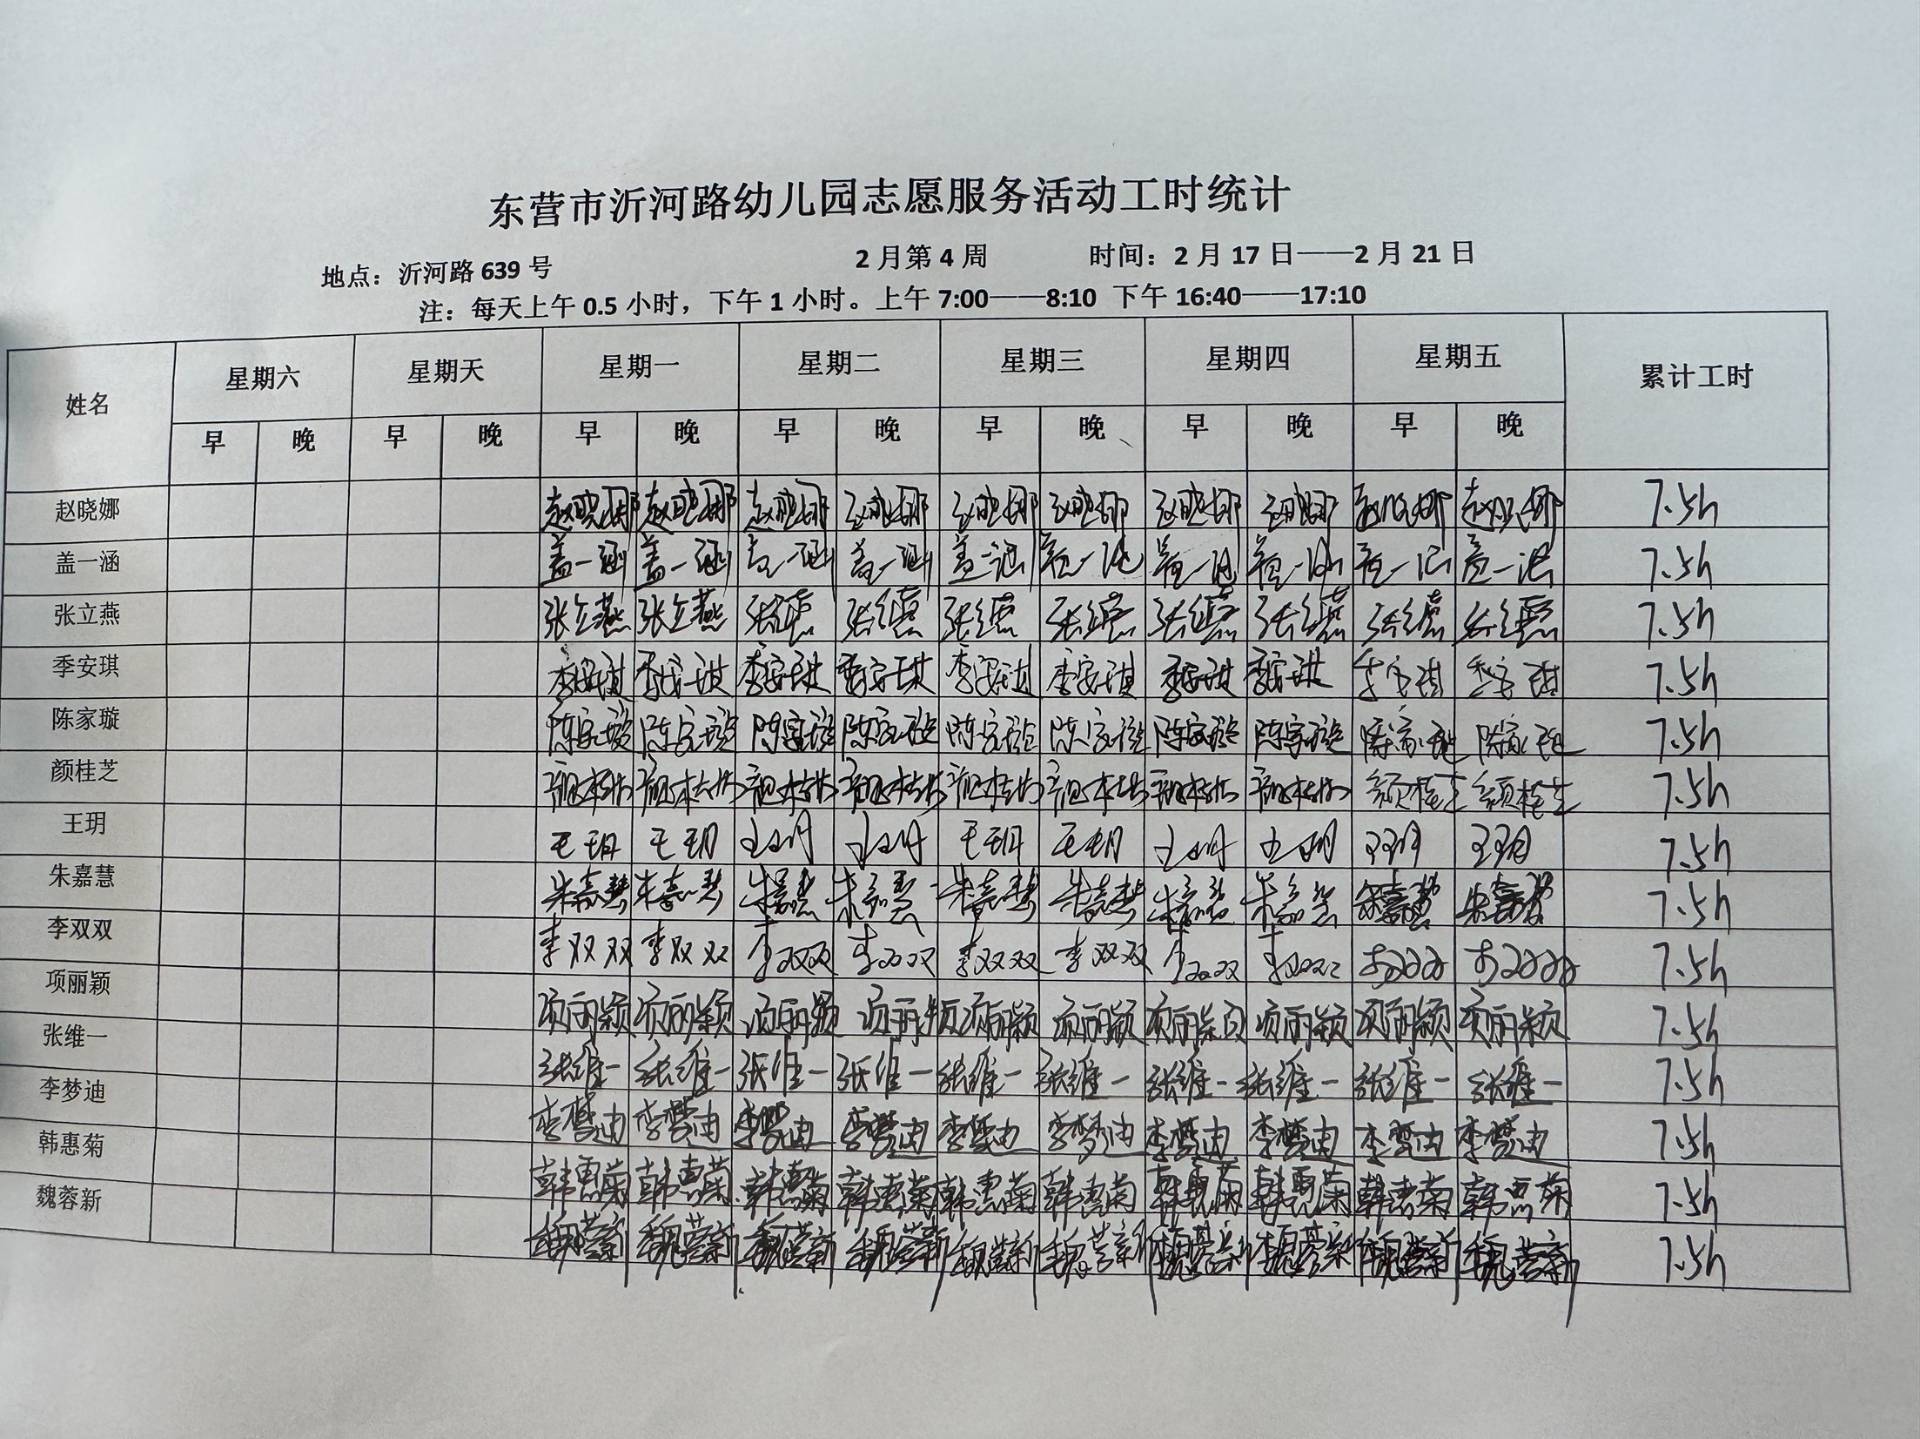 东营市沂河路幼儿园志愿服务活动工时统计
地点：沂河路 639 号 2 月第 4 周 时间：2 月 17 日——2 月 21 日
注：每天上午 0.5 小时，下午 1 小时。上午 7:00——8:10 下午 16:40——17:10
姓名 星期六 星期天 星期一 星期二 星期三 星期四 星期五 累计工时
早 晚 早 晚 早 晚 早 晚 早 晚 早 晚 早 晚
赵晓娜 赵晓娜 赵晓娜 赵晓娜 赵晓娜 赵晓娜 赵晓娜 赵晓娜 赵晓娜 赵晓娜 赵晓娜 7.5h
盖一涵 盖一涵 盖一涵 盖一涵 盖一涵 盖一涵 盖一涵 盖一涵 盖一涵 盖一涵 盖一涵 7.5h
张立燕 张立燕 张立燕 张立燕 张立燕 张立燕 张立燕 张立燕 张立燕 张立燕 张立燕 7.5h
季安琪 季安琪 季安琪 季安琪 季安琪 季安琪 季安琪 季安琪 季安琪 季安琪 季安琪 7.5h
陈家璇 陈家璇 陈家璇 陈家璇 陈家璇 陈家璇 陈家璇 陈家璇 陈家璇 陈家璇 陈家璇 7.5h
颜桂芝 颜桂芝 颜桂芝 颜桂芝 颜桂芝 颜桂芝 颜桂芝 颜桂芝 颜桂芝 颜桂芝 颜桂芝 7.5h
王玥 王玥 王玥 王玥 王玥 王玥 王玥 王玥 王玥 王玥 王玥 7.5h
朱嘉慧 朱嘉慧 朱嘉慧 朱嘉慧 朱嘉慧 朱嘉慧 朱嘉慧 朱嘉慧 朱嘉慧 朱嘉慧 朱嘉慧 7.5h
李双双 李双双 李双双 李双双 李双双 李双双 李双双 李双双 李双双 李双双 李双双 7.5h
项丽颖 项丽颖 项丽颖 项丽颖 项丽颖 项丽颖 项丽颖 项丽颖 项丽颖 项丽颖 项丽颖 7.5h
张维一 张维一 张维一 张维一 张维一 张维一 张维一 张维一 张维一 张维一 张维一 7.5h
李梦迪 李梦迪 李梦迪 李梦迪 李梦迪 李梦迪 李梦迪 李梦迪 李梦迪 李梦迪 李梦迪 7.5h
韩惠菊 韩惠菊 韩惠菊 韩惠菊 韩惠菊 韩惠菊 韩惠菊 韩惠菊 韩惠菊 韩惠菊 韩惠菊 7.5h
魏蓉新 魏蓉新 魏蓉新 魏蓉新 魏蓉新 魏蓉新 魏蓉新 魏蓉新 魏蓉新 魏蓉新 魏蓉新 7.5h